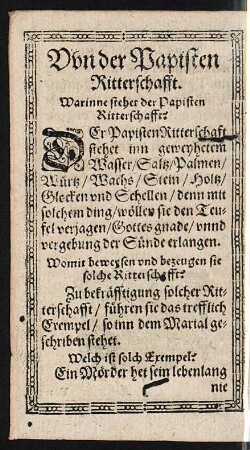 Von der Papisten
Ritterschafft.
Warinne stehet der Papisten
Ritterschafft?
DEr Papisten Ritterschafft
stehet inn geweyhetem
Wasser/Saltz/Palmen/
Würtz/Wachs/Stein/Holtz/
Glocken vnd Schellen/denn mit
solchem ding/wöllen sie den Teu-
fel verjagen/Gottes gnade/vnnd
vergebung der Sünde erlangen.
Womit beweysen vnd bezeugen sie
solche Ritterschafft?
Zu bekräfftigung solcher Rit-
terschafft/führen sie das trefflich
Exempel/so inn dem Martial ge-
schriben stehet.
Welch ist solch Exempel?
Ein Mörder het sein lebenlang
nie